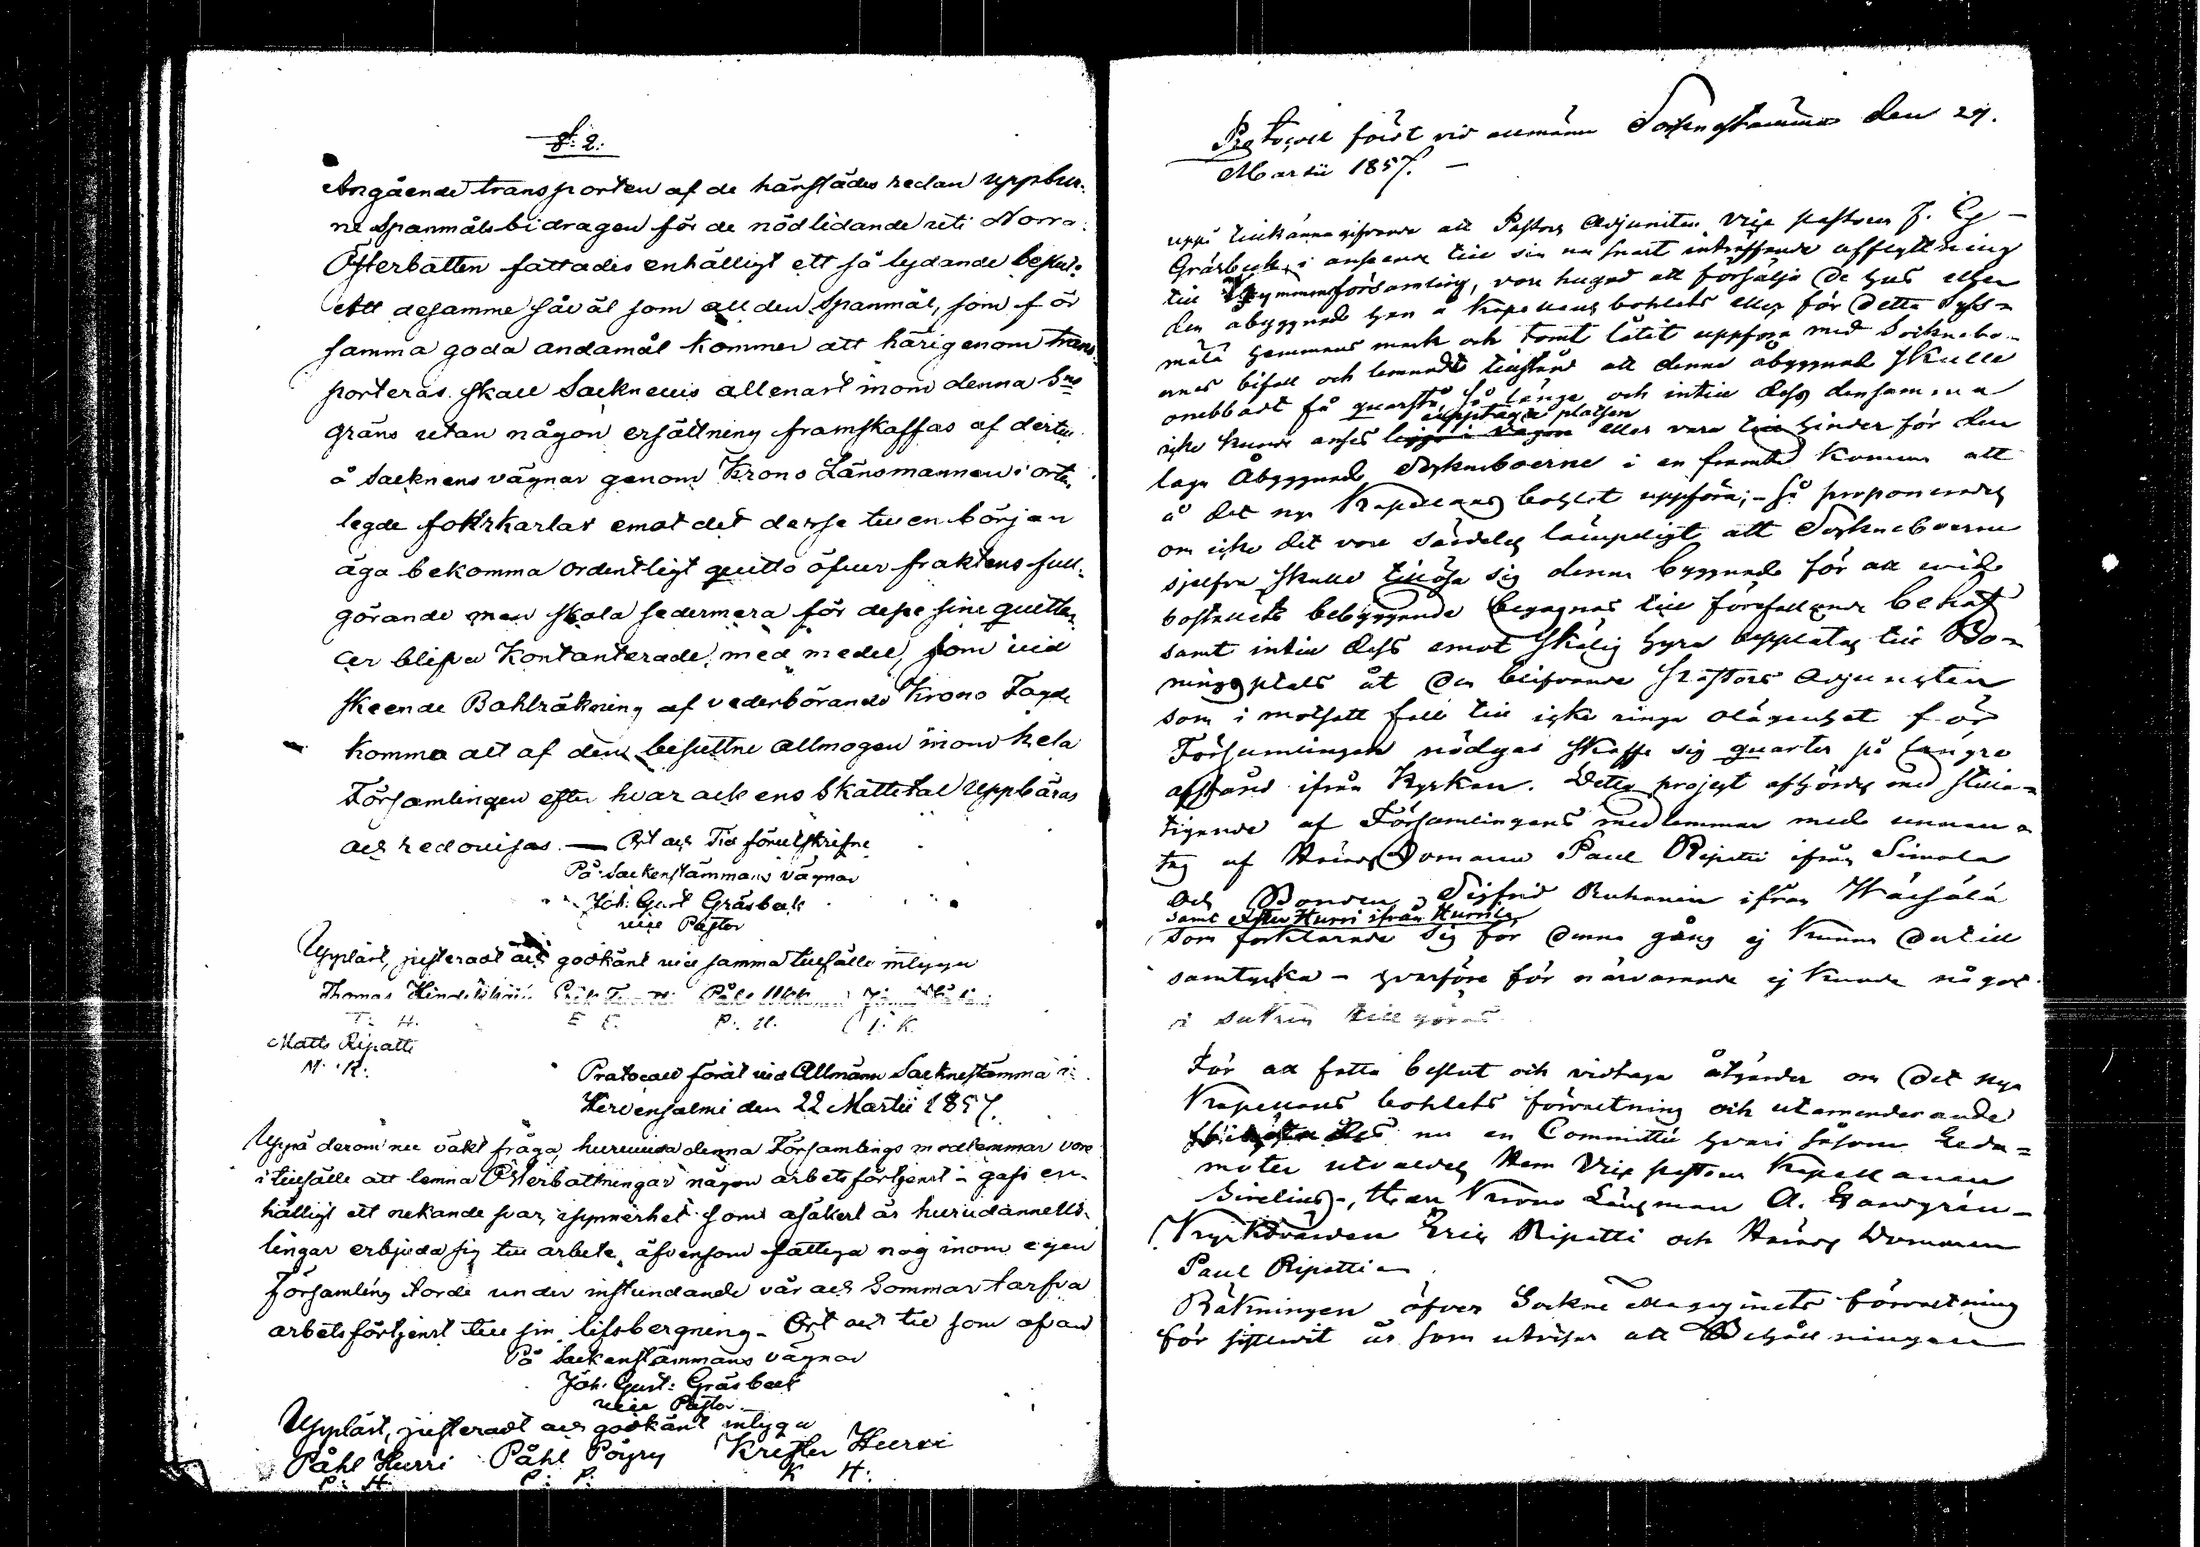 §. 2.
Angående transporten af de härstädes redan uppbur-
ne Spanmålsbidragen för de nödlidande uti Norra
Österbotten fattades enhälligt ett så lydande beslut:
Att desamme såväl som all den Spanmål, som för
samma goda andamål kommer att härigenom trans-
porteras skall Sacknevis allenast inom denna Sns
gräns utan någon ersättning framskaffas af dertill
å Sacknens vägnar genom Krono Länsmannen i orten
legde forkarlar emot det desse till en början
äga bekomma ordentligt quitto öfver fraktens full-
görande men skola sedermera för desse sine quitten-
cer blifva Kontanterade med medel, som vid
skeende Bahlräkning af vederbörande Krono Fogde
komma att af den besuttne allmogen inom hela
Församlingen efter hvar och ens Skattetal uppbäras
och redovisas. — Ort och Tid förutskrifne
På Sackenstämmans vägnar
Joh: Gust Gräsbeck
vice Pastor
Uppläst, justeradt och godkänt vid samma tillfälle intyga
Thomas Hindikäin Påhl Ukkonen
T: H. E E. P: U. J. K.
Matts Ripatti
M: R:
Protocoll fördt vid Allmänn Sacknestämma i
Hervensalmi den 22 Martii 1857.
Uppå derom nu väkt fråga, huruvida denna Församlings medlemmar vore
i tillfälle att lemna Österbottningar någon arbetsförtjenst - gafs en-
hälligt ett nekande svar, isynnerhet som
lingar erbjuda sig till arbete, äfvensom fattiga nog inom egen
Församling torde under instundande vår och Sommar tarfva
arbetsförtjenst till sin lifsbergning - Ort och tid som ofvan
På Sackenstämmans vägnar
Joh. Gust: Gräsbeck
vice Pastor
Uppläst, justeradt och godkänt intyga
Påhl Hurri Påhl Pöyry Krister Hurri
P: H. P: P: K H:
Protocoll fördt vid allmänn Sockenstämma den 29.
Martii 1857. —
uppå tillkännagifvande att Pastors Adjuncten Vice pastorn J. G
Gräsbeck, i anseende till sin nu snart inträffande afflyttning
till församling, vore hugad att försälja de hus eller
den åbyggnad han å Kapellans bohlets eller för detta
mäla hemmans mark och tomt låtit uppföra med Sockneboer-
nes bifall och lemnadt tillstånd att denna åbyggnad skulle
onebbadt få quarstå, så länge och intill dess densamma
icke kunde anses upptaga platsen eller vara till hinder för den
laga Åbyggnad Sockneboerne i en framtid komma att
å det nya Kapellans bohlet uppföra; - så proponerades
om icke det vore särdeles lämpeligt att Sockneboerne
sjelfva skulle tillösa sig denna byggnad för att vid
bostellets bebyggande begagnas till förefallande behof
samt intill dess emot skälig hyra upplåtas till Bo-
ningsplats åt den blifvande Pastors Adjuncten
som i motsatt fall till icke ringa olägenhet för
Församlingen nödgas skaffa sig quarter på längre
afstånd ifrån Kyrkan. Detta project afhördes med stilla-
tigande af Församlingens medlemmar med undan-
tag af Härads Domaren Paul Ripatti ifrån Simola
och Bonden Sigfrid Ruhanen ifrån
samt Hurri ifrån Hurrila
som förklarade sig för denna gång ej kunna dertill
samtycka - hvarföre för närvarande ej kunde något
i saken tillgöras.
För att fatta beslut och vidtaga åtgärder om det nya
Kapellans bohlets förvaltning och utarrenderande
nu en Committé hvari såsom Leda-
möter utvaldes Herr Vice pastorn Kapellanen
Sirelius, Herr Krono Länsman A. Sandgrén -
Kyrkovärden Eric Ripatti och Härads Domaren
Paul Ripatti -
Räkningen öfver Sockne Magazinets förvaltning
för sistlidit år som utviser att Behållningen